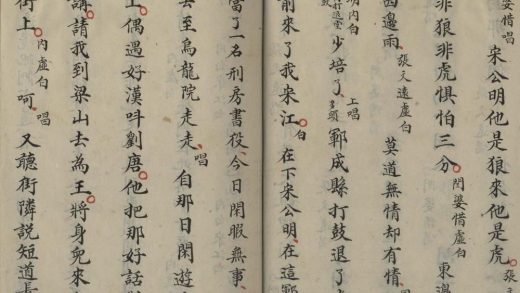 婆惜唱 宋公明他是狼來他是虎。張
非狼非虎惧怕三分。閆婆惜虛白 東邊
西邊雨。張文遠虛白 莫道無情却有情。
明内白 少培了 上唱 鄆成縣打鼓退了
前來了我宋江。白 在下宋公明。在這鄆
當了一名刑房書役、今日閑暇無事、
去至烏龍院走走、唱 自那日閑遊
上。偶遇好漢叫劉唐。他把那好話
請我到梁山去為王。將身兒來
街上。内虛白 呵。唱 又聽街隣說短道長